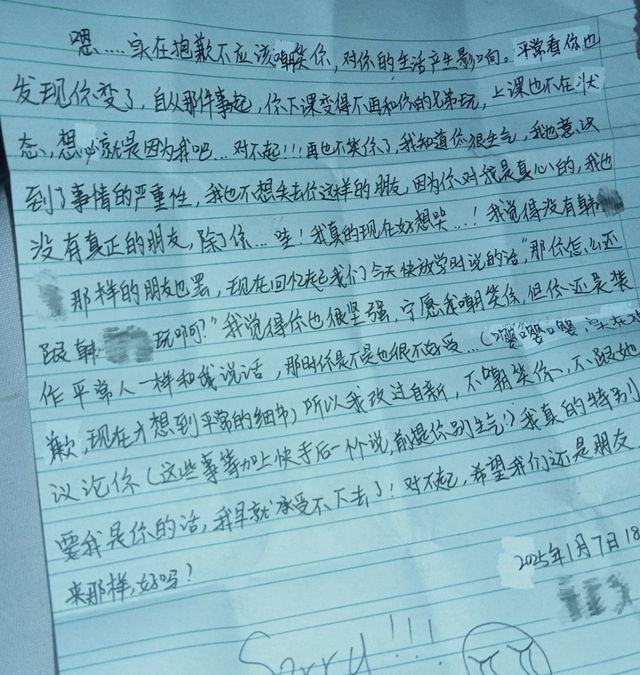 嗯……实在抱歉不应该嘲笑你，对你的生活产生影响。平常看你也
发现你变了，自从那件事起，你下课变得不再和你的兄弟玩，上课也不在状
态，想必就是因为我吧…对不起！！！再也不笑你了，我知道你很生气，我也意识
到了事情的严重性，我也不想失去你这样的朋友，因为你对我是真心的，我也
没有真正的朋友，除了你…哇！我真的现在好想哭…！我觉得没有韩
那样的朋友也罢，现在回忆起我们今天快放学时说的话，“那你怎么还
跟韩 玩啊？”我觉得你也很坚强，宁愿我嘲笑你，但你还是装
作平常人一样和我说话，那时你是不是也很不好受…（嘤嘤嘤，实在对
歉，现在才想到平常的细节）所以我改过自新，不嘲笑你、不跟她
议论你（这些事等加上快手后一个个说，前提你别生气！）我真的特别
要我是你的话，我早就承受不下去了！对不起，希望我们还是朋友
来那样，好吗？
2025年1月7日18
Sorry!!!